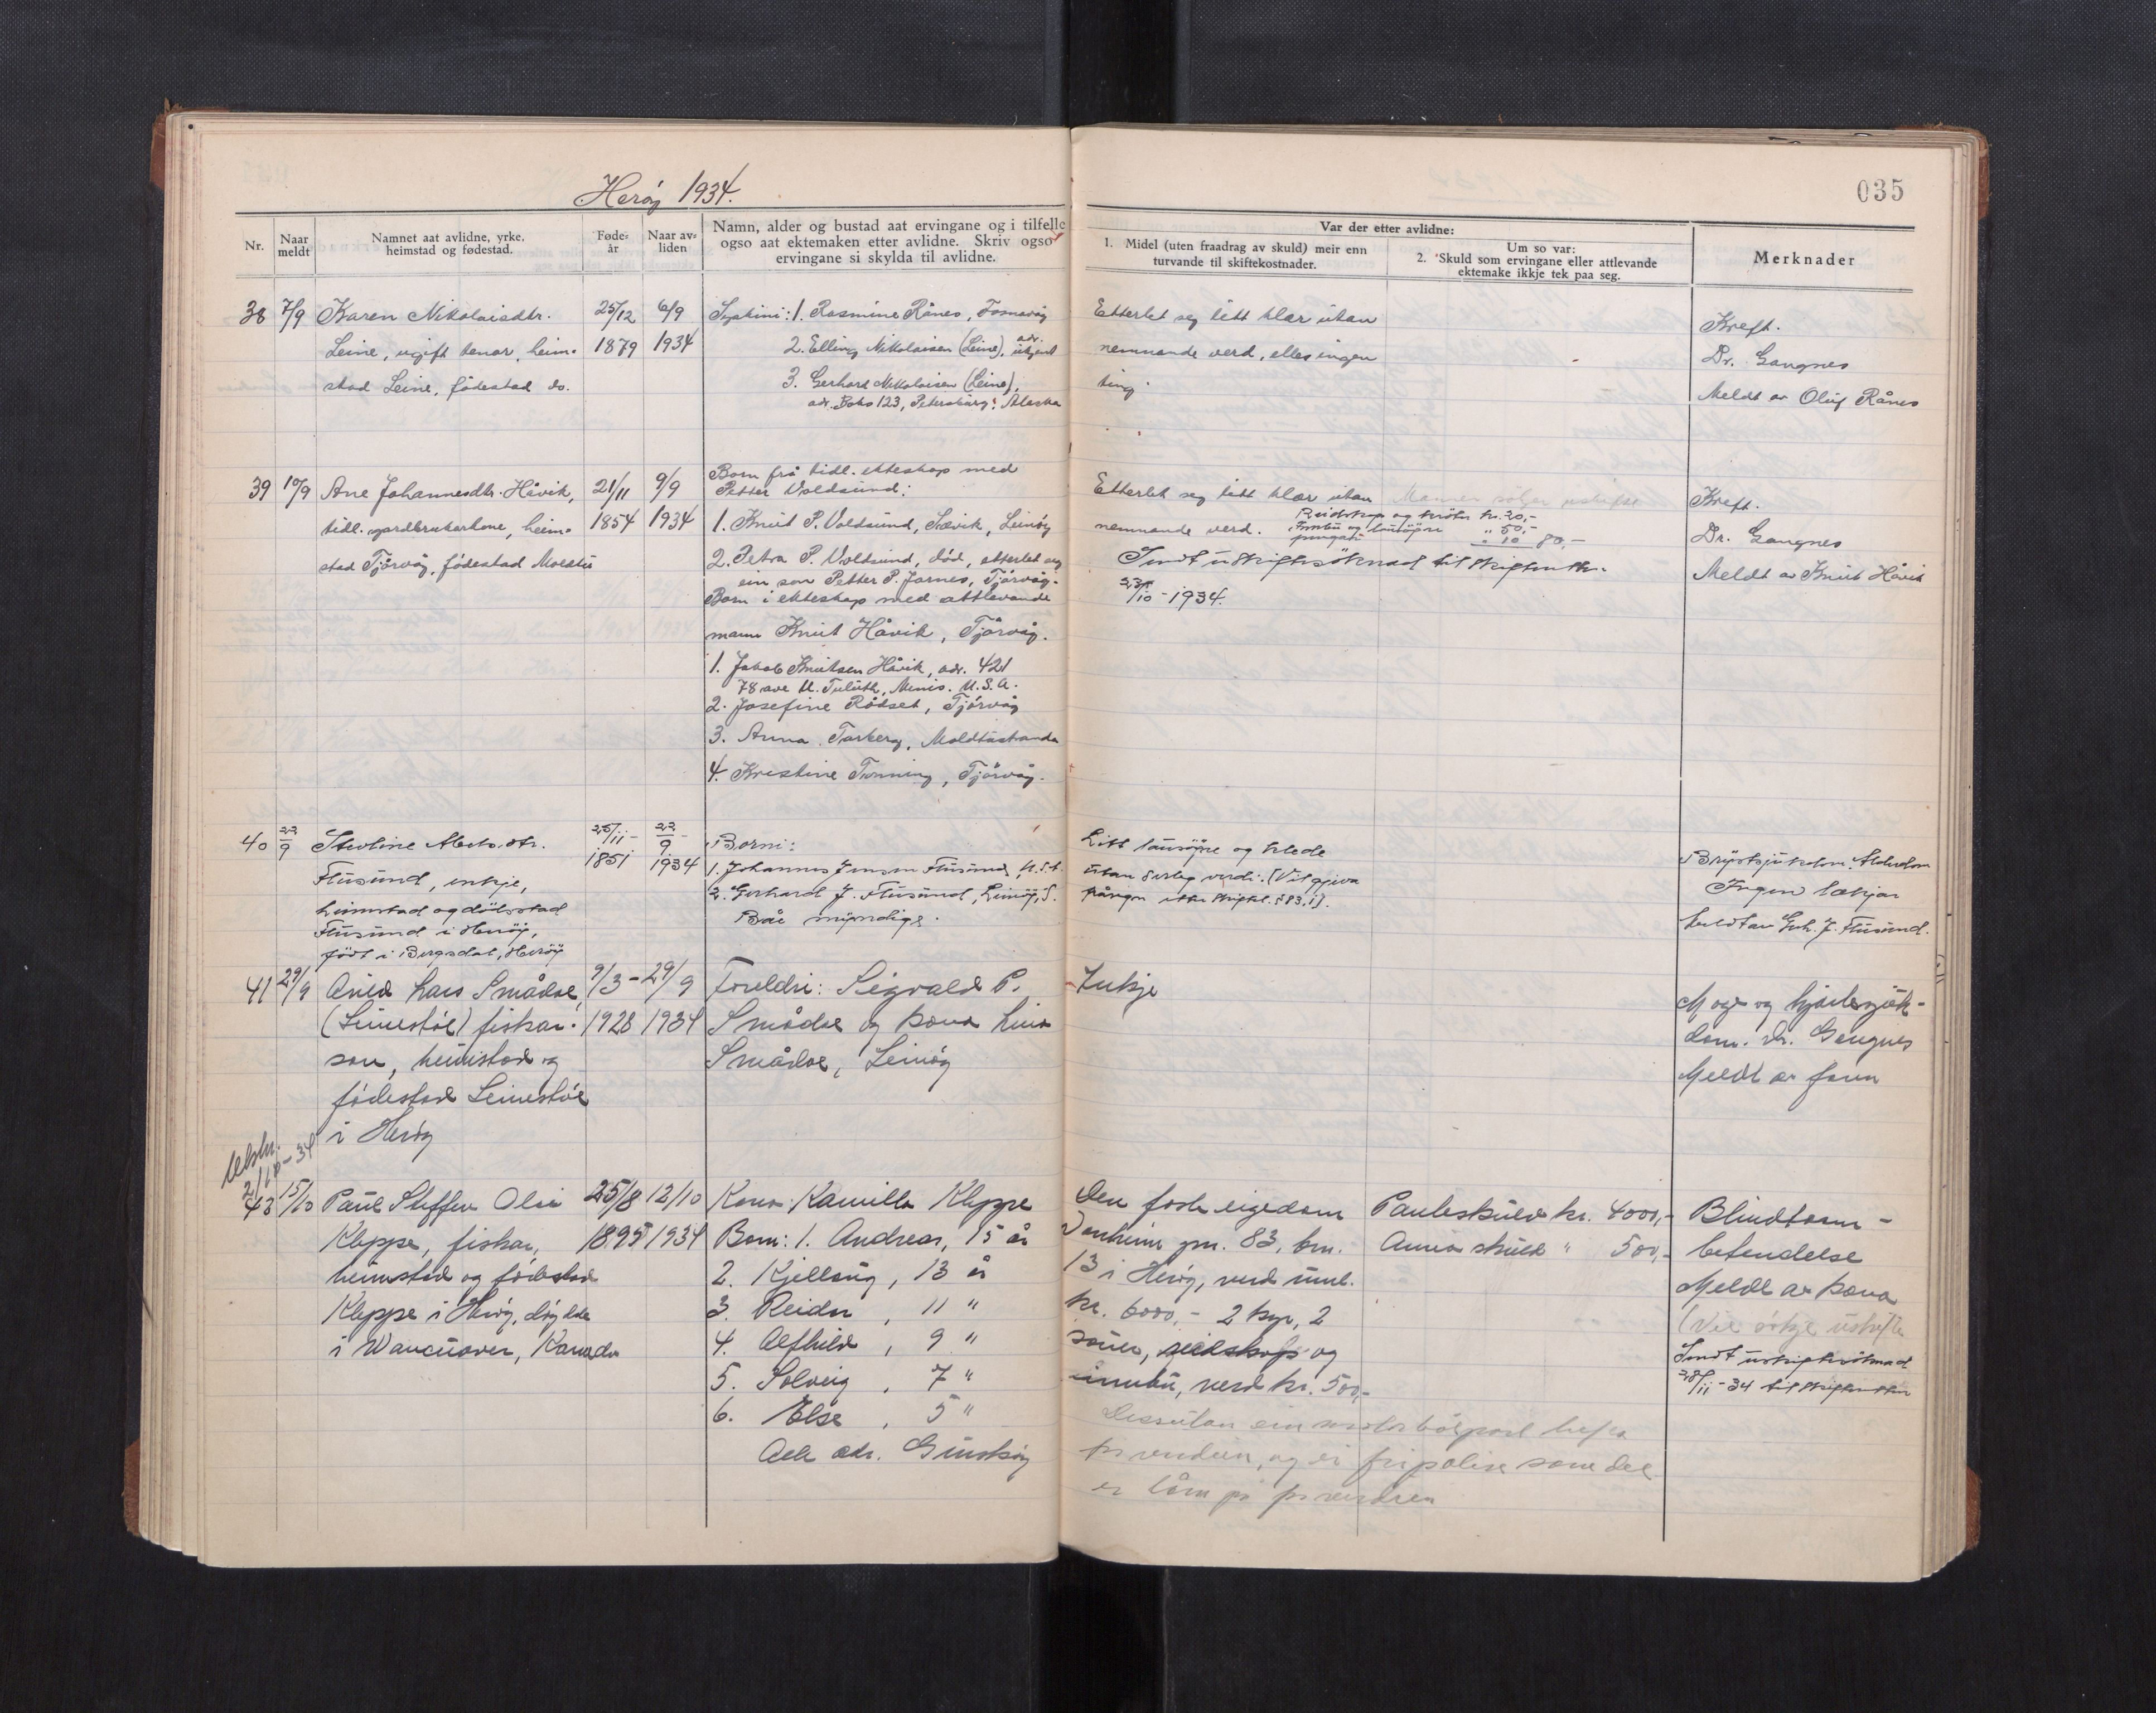 Herøy 1934.
035
Nr.
Naar meldt
Namnet aat avlidne, yrke, heimstad og fødestad.
Føde-år
Naar av-liden
Namn, alder og bustad aat ervingane og i tilfelle
ogso aat ektemaken etter avlidne. Skriv ogso
ervingane si skylda til avlidne.
Var der etter avlidne:
1. Midel (uten fraadrag av skuld) meir enn
turvande til skiftekostnader.
Um so var:
2. Skuld som ervingane eller attlevande
ektemake ikkje tek paa seg.
Merknader
38 7/9 Karen Nikolaisdtr.
Leine, ugift tenar, heim-
stad Leine, fødestad do.
25/12
1879
6/9
1934
Syskini: 1. Rasmine Rånes, Fosnavåg
2. Elling Nikolaisen (Leine), adr. ukjent
3. Gerhard Nikolaisen (Leine),
adr. Boks 123, Petersburg, Alaska
Etterlet seg litt klær utan
nemnande verd, elles ingen
ting.
Kreft.
Dr. Gangnes
Meldt av Oluf Rånes
39 10/9 Ane Johannesdtr. Håvik,
tidl. gardbrukarkone, heim-
stad Tjørvåg, fødestad Moldtu
21/11
1854
9/9
1934
Born frå tidl. ekteskap med
Petter Voldsund:
1. Knut P. Voldsund, Sævik, Leinøy
2. Petra P. Voldsund, død, etterlet seg
ein son Petter P. Jarnes, Tjørvåg.
Born i ekteskap med attlevande
mann Knut Håvik, Tjørvåg.
1. Jakob Knutsen Håvik, adr. 421
78 ave W. Duluth, Minis. U.S.A.
2. Josefine Rødset, Tjørvåg
3. Anna Tarberg, Moldtustranda
4. Kristine Tonning, Tjørvåg.
Etterlet seg litt klær utan
nemnande verd.
Mannen søkjer uskifte
Reidskap og krøter kr. 20,-
Innbu og lausøyre " 50,-
" 10 80,-
Sendt uskiftesøknad til skifteretten
23/10-1934.
Kreft.
Dr. Gangnes
Meldt av Knut Håvik
40 22/9
Flusund, enkje,
heimstad og dødsstad
Flusund i Herøy,
født i Bergsdal, Herøy
25/11-
1851
22/9-
1934
Borni:
1. Johannes Jensen Flusund, U.S.A.
2. Gerhard J. Flusund, Leinøy, S.
Båe myndige.
Litt lausøyre og klede
utan serleg verdi.
Brystsjukdom. Alderdom
Ingen lækjar
Meldt av Gerh. J. Flusund.
41 29/9 Arild Lars Smådal
(Leinestøl) fiskar-
son, heimstad og
fødestad Leinestøl
i Herøy
9/3-
1928
29/9
1934
Foreldri: Sigvald P.
Smådal og kona Lina
Smådal, Leinøy
Inkje
Mage og hjartesjuk-
dom. Dr. Gangnes
Meldt av faren
43 15/10 Paul Steffen Olai
Kleppe, fiskar,
heimstad og fødestad
Kleppe i Herøy, døydde
i Wancuover, Kanada
25/8
1895
12/10
1934
Kona Kamilla Kleppe
Born: 1. Andreas, 15 år
2. Kjellaug, 13 år
3. Reidun, 11 "
4. Alfhild, 9 "
5. Solveig, 7 "
6. Else, 5 "
Alle adr. Gurskøy
Den faste eigedom
gnr. 83, bnr.
13 i Herøy, verd uml.
kr. 6000,- 2 kyr, 2
sauer, reidskap og
innbu, verd kr. 500,-
Dessutan ein motorbåtpart
og ei fripolise som det
er lån på
Panteskuld kr. 4000,-
Annen skuld " 500,-
Blindtarm-
betendelse
Meldt av kona
(Vil søkje uskifte
Sendt uskiftesøknad
28/11-34 til skifteretten